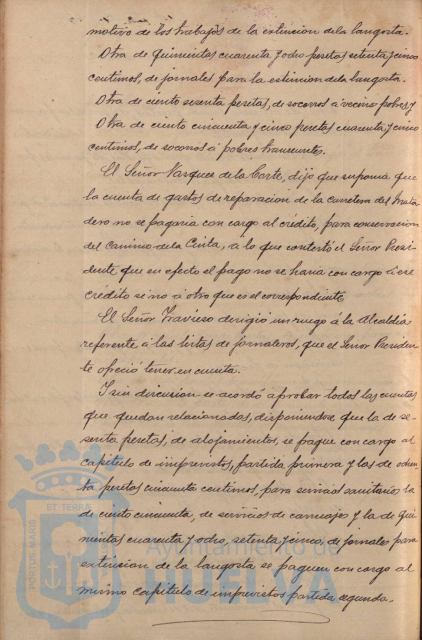 motivo de los trabajos de la estincion de la langosta.
Otra de quinientas cuarenta y ocho pesetas setenta y cinco
centimos, de jornales para la estincion de la langosta.
Otra de ciento sesenta pesetas, de socorros a vecinos pobres y
Otra de ciento cincuenta y cinco pesetas cuarenta y cinco
centimos, de socorros á pobres transeuntes.
El Señor Vazquez de la Corte, dijo que suponia que
la cuenta de gastos de reparacion de la carretera del Mata
dero no se pagaria con cargo al crédito, para conservacion
del Camino de la Cinta, a lo que contestó el Señor Presi
dente que en efecto el pago no se haria con cargo á ese
crédito si no á otro que es el correspondiente.
El Señor Travieso dirigió un ruego á la Alcaldia
referente á las listas de jornaleros, que el Señor Presiden
te ofreció tener en cuenta.
I sin discusion se acordó aprobar todas las cuentas
que quedan relacionadas, disponiendose que la de se-
senta pesetas, de alojamientos, se pague con cargo al
capitulo de imprevistos, partida primera y las de ochen
ta pesetas cincuenta centimos, para servicios sanitarios la
de ciento cincuenta, de servicios de carruajes y la de qui
nientas cuarenta y ocho, setenta y cinco, de jornales para
extension de la langosta se paguen con cargo al
mismo capitulo de imprevistos partida segunda.
ET TERRA
PORTUS MARIS
Ayuntamiento de
HUELVA